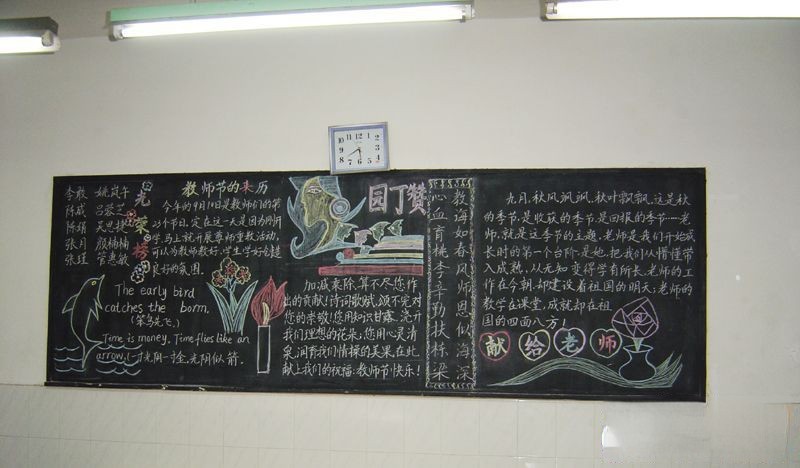 李敢 姚岚午
陈威 吕蓉芝
陈娟 吴思捷
张月 颜楠楠
张瑾 管惠敏
光荣榜
教师节的来历
今年的9月10日是教师们的第
23个节日。定在这一天是因为刚开
学,马上就开展尊师重教活动,
可以为教师教好、学生学好创造
良好的氛围。
The early bird
catches the borm.
(笨鸟先飞)
Time is money. Time flies like an
arrow.(一寸光阴一寸金,光阴似箭.
园丁赞
加减乘除,算不尽您作
出的贡献!诗词歌赋,颂不完对
您的崇敬!您用知识甘露,浇开
我们理想的花朵;您用心灵清
泉,润育我们情操的美果,在此,
献上我们的祝福:教师节快乐!
教海如春风师恩似海深
心血育桃李辛勤扶栋梁
九月,秋风飒飒,秋叶飘飘。这是秋
的季节,是收获的季节,是回报的季节……老
师,就是这季节的主题,老师是我们开始成
长时的第一个台阶,是她,把我们从懵懂带
入成熟,从无知变得学有所长,老师的工
作在今朝,却建设着祖国的明天;老师的
教学在课堂,成就却在祖
国的四面八方!
献给老师
10 11 12 1
9 2
8 3
7 6 5 4